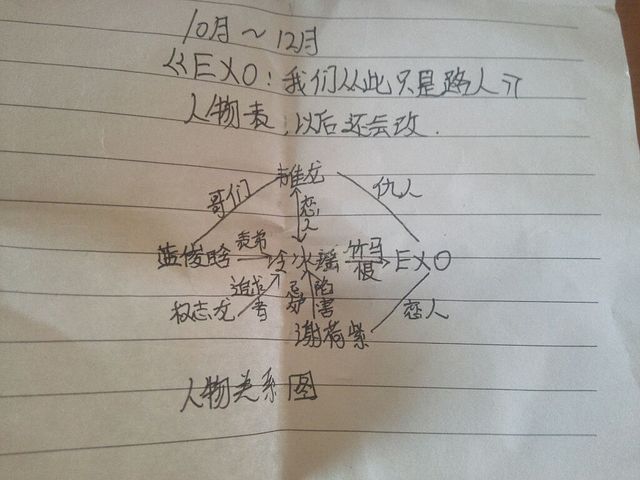 10月～12月
《EXO：我们从此只是路人》
人物表，以后还会改.
韩龙
哥们 恋人 仇人
蓝俊晗 表弟 冷冰瑶 竹马 恨 EXO
权志龙 追求者 忌妒 陷害 恋人
谢荷紫
人物关系图